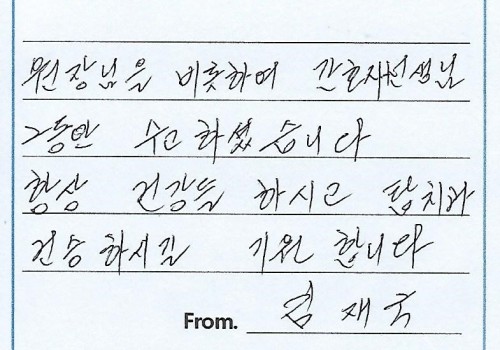 원장님을 비롯하여 간호사선생님
그동안 수고 하셨습니다
항상 건강들 하시고 탑치과
건승 하시길 기원 합니다
From. 김재국